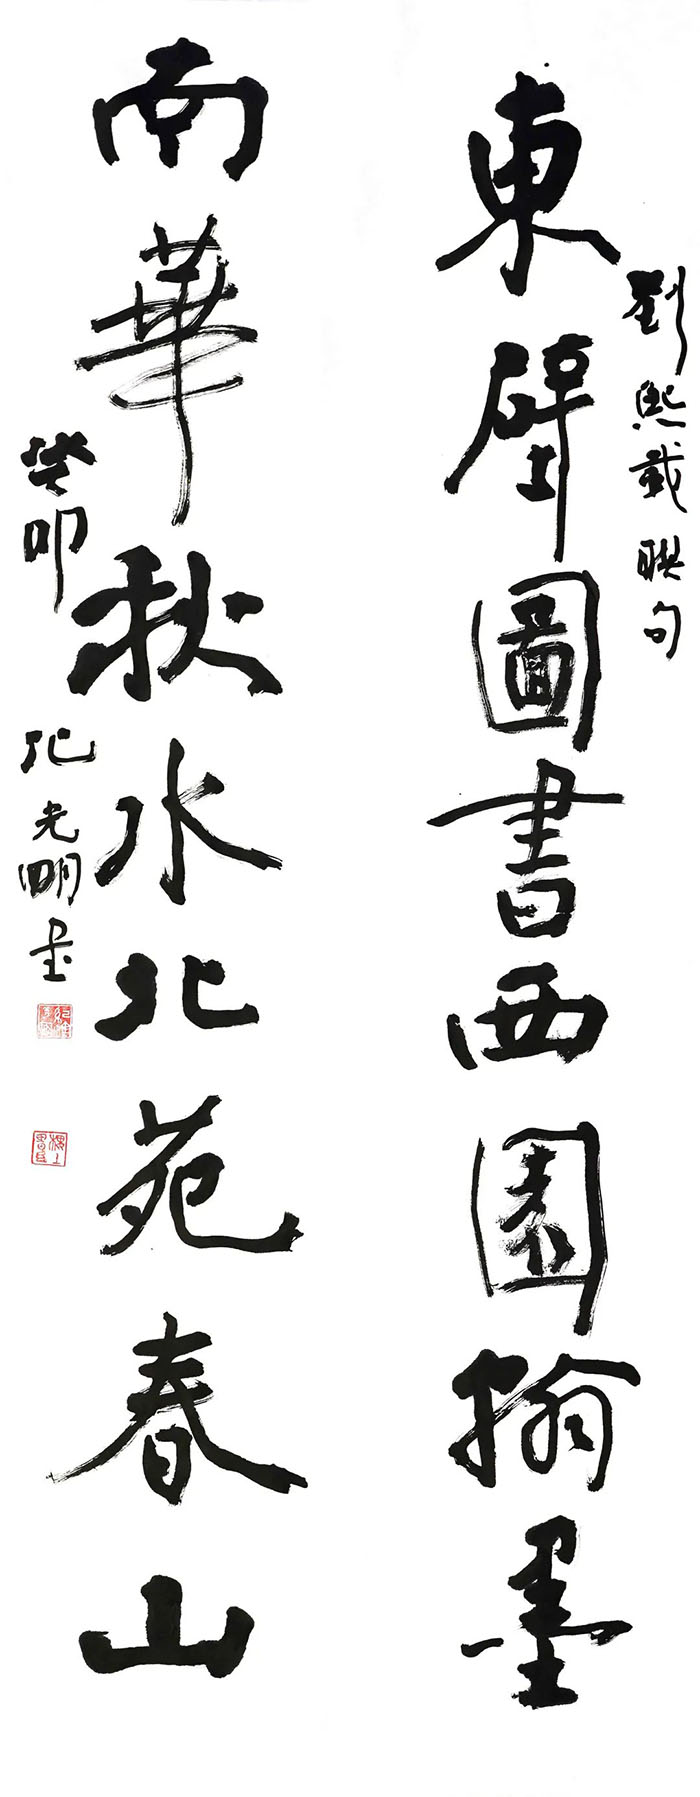 劉熙載聯句
東壁圖書西園翰墨
南華秋水北苑春山
癸卯
光明書